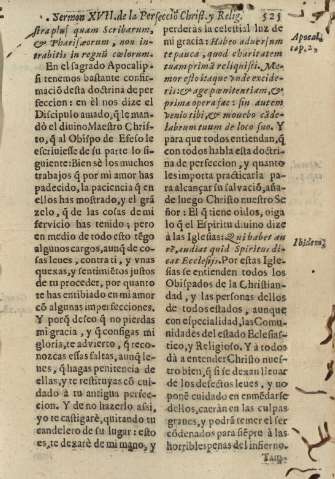 Sermon XVII. de la Perfecciõ Christ. y Relig. 525
stra plus quam Scribarum,
& Phariseorum, non in-
trabitis in regnũ cœlorum.
En el sagrado Apocalip-
si tenemos bastante confir-
mació desta doctrina de per
feccion: en èl nos dize el
Discipulo amado, q̃ le man-
dò el divino Maestro Chris-
to, q̃ al Obispo de Efeso le
escriuiesse de su parte lo si-
guiente: Bien sè los muchos
trabajos q̃ por mi amor has
padecido, la paciencia q̃ en
ellos has mostrado, y el grã
zelo, q̃ de las cosas de mi
servicio has tenido; pero
en medio de todo esto tẽgo
algunos cargos, aunq̃ de co-
sas leues, contra ti, y vnas
quexas, y sentimiẽtos justos
de tu proceder, por quanto
te has entibiado en mi amor
cõ algunas imperfecciones.
Y porq̃ deseo q̃ no pierdas
mi gracia, y q̃ consigas mi
gloria, te advierto, q̃ reco-
nozcas essas faltas, aunq̃ le-
ues, q̃ hagas penitencia de
ellas, y te restituyas cõ cui-
dado à tu antigua perfec-
cion. Y de no hazerlo assi,
yo te castigarè, quitando tu
candelero de su lugar: esto
es, te dexarè de mi mano, y
perderàs la celestial luz de
mi gracia: Habeo adversum
te pauca, quod charitatem
tuam primã reliquisti. Me-
mor esto itaque vnde excide-
ris: & age pœnitentiam, &
prima opera fac: sin autem
venio tibi, & movebo cãde-
labrum tuum de loco suo. Y
para que todos entiendan, q̃
con todos habla esta doctri-
na de perfeccion, y quanto
les importa practicarla pa-
ra alcançar su salvaciõ, aña-
de luego Christo nuestro Se
ñor: El q̃ tiene oidos, oiga
lo q̃ el Espiritu divino dize
à las Iglesias: Qui habet au
rẽ, audiat quid Spiritus di-
cat Ecclesijs. Por estas Igle-
sias se entienden todos los
Obispados de la Christian-
dad, y las personas dellos
de todos estados, aunque
con especialidad, las Comu-
nidades del estado Eclesias-
tico, y Religioso. Y à todos
dà a entender Christo nues-
tro bien, q̃ si se dexan lleuar
de los defectos leues, y no
ponẽ cuidado en enmẽdarse
dellos, caeràn en las culpas
graues, y podrà temer el ser
cõdenados para siẽpre à las
horribles penas del infierno.
Tam-
Apocal.
cap. 2.
Ibidem